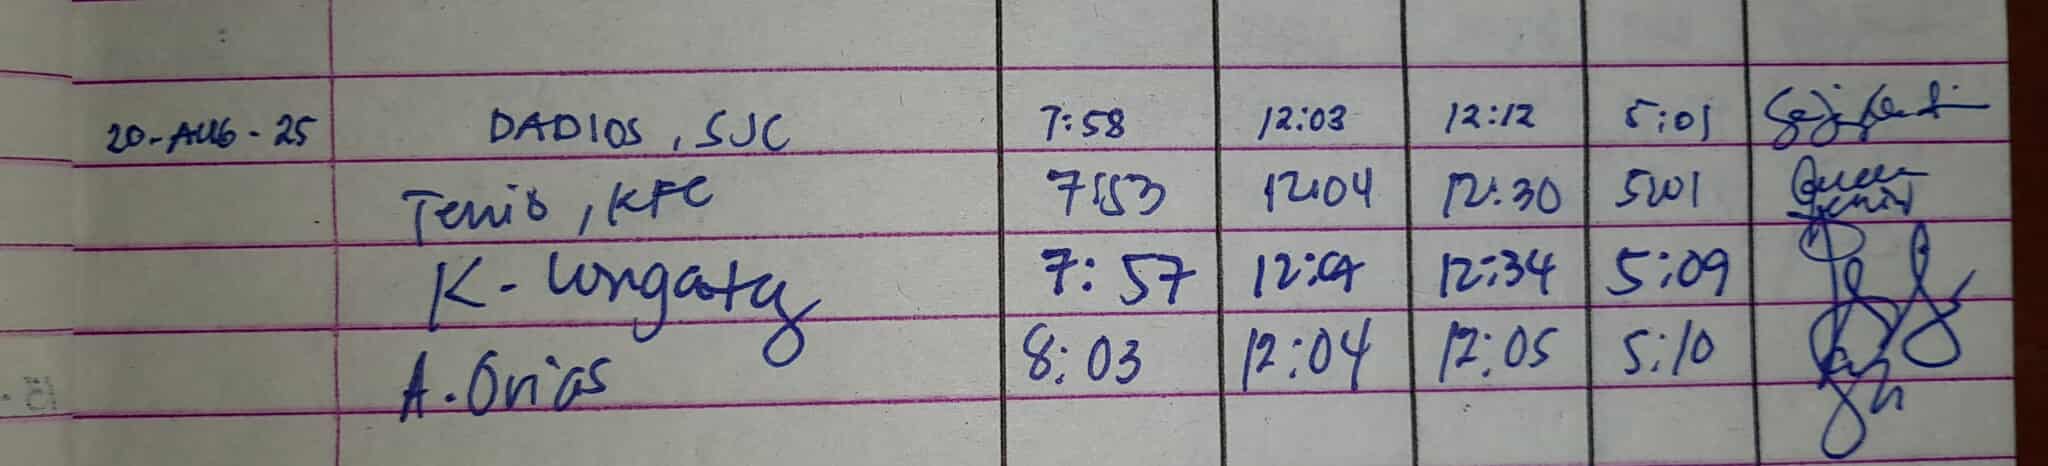 20-AUG-25 DADIOS, SJC 7:58 12:03 12:12 5:01
Tenis, KFC 7:53 12:04 12:30 5:01
K. 7:57 12:34 5:09
A. Orias 8:03 12:04 12:05 5:10